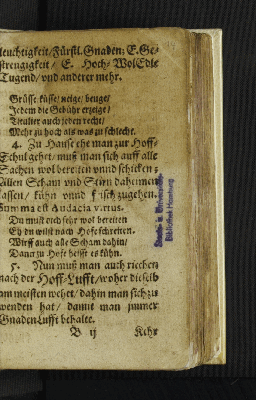 leuchtigkeit/Fürstl. Gnaden; E. Ge-
strengigkeit/ E. Hoch- WolEdle
Tugend/ vnd anderer mehr.
Grüsse küsse/neige/ beuge/
Jedem die Gebühr erzeige/
auch jeden recht/
Mehr zu hoch als was zu schlecht.
4. Zu Hause ehe man zur Hoff-
Schul gehet/ muß man sich auff alle
Sachen wol bereiten vnnd schicken
allen Scham vnd Stirn daheimen
lassen/ kühn vnnd frisch zugehen.
Summa est Audacia virtus.
Du must dich sehr wol bereiten
Eh du wilst nach Hofe schreiten.
Wirff auch alle Scham dahin/
Dann zu Hofe heist es kühn.
5. Nun muß man auch riechen
nach der Hoff-Lufft/woher dieselb
am meisten wehet/dahin man sich zu
wenden hat/ damit man immer
GnadenLufft behalte.
B ij Kehr
Staats- u. Universitäts-
Bibliothek Hamburg